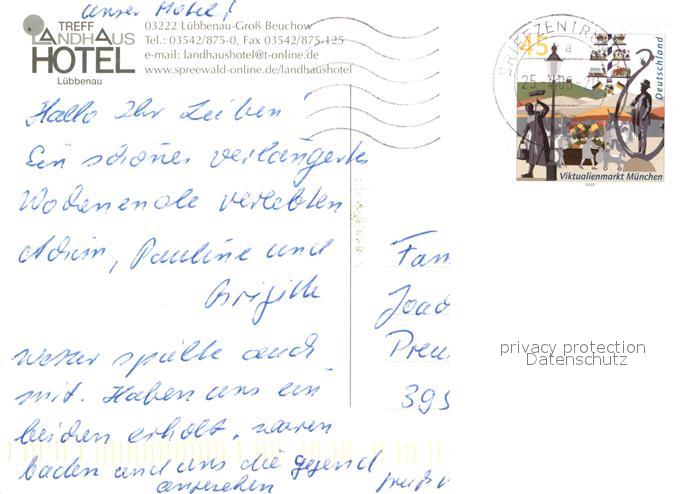 unser Hotel!
TREFF
LANDHAUS
HOTEL
Lübbenau
03222 Lübbenau-Groß Beuchow
Tel.: 03542/875-0, Fax 03542/875-125
e-mail: landhaushotel@t-online.de
www.spreewald-online.de/landhaushotel
BRIEFZENTR
45
Deutschland
Viktualienmarkt München
2003
Hallo Ihr Lieben!
Ein schönes verlängertes
Wochenende verlebten
Achim, Pauline und
Brigitte
Wetter spielte auch
mit. Haben uns ein
bißchen erholt, waren
baden und uns die Gegend
ansehen
Fam
Joac
Preu
395
privacy protection
Datenschutz